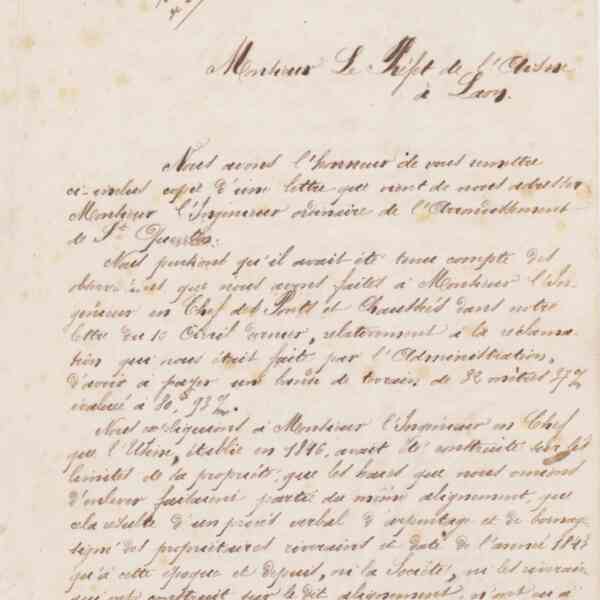 Monsieur Le Préfet de l'Aisne
à Laon.
Nous avons l'honneur de vous remettre
ci-inclus copie d'une lettre que vient de nous adresser
Monsieur l'Ingénieur ordinaire de l'Arrondissement
de St Quentin.
Nous pensions qu'il avait été tenu compte des
observations que nous avons faites à Monsieur l'In-
génieur en Chef des Ponts et Chaussées dans notre
lettre du 10 Avril dernier, relativement à la réclama-
tion qui nous était faite par l'Administration,
d'avoir à payer un bande de terrain de 32 mètres
évalué à
Nous à Monsieur l'Ingénieur en Chef
que l'Usine, établie en 1846, avait été construite sur les
limites de la propriété, que les haies que nous venions
d'enlever faisaient partie du même alignement, que
cela résulte d'un procès verbal d'arpentage et de bornage
signé des propriétaires riverains et daté de l'année 1843
qu'à cette époque et depuis, ni la Société, ni les riverains
qui ont construit sur le dit alignement, n'ont eu à